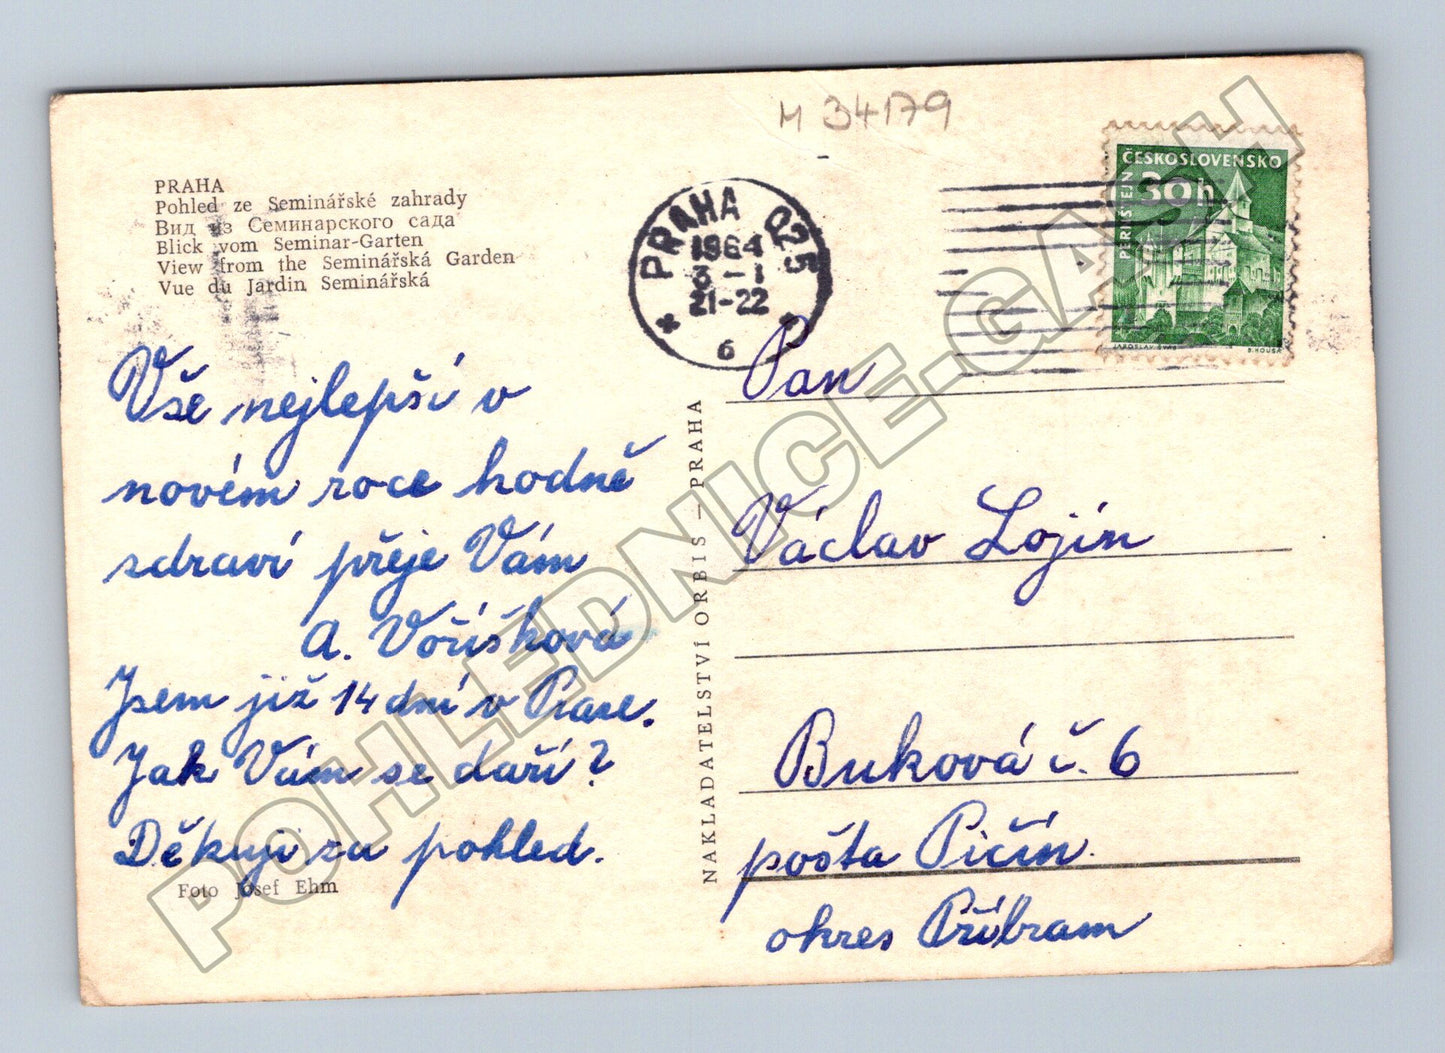 M 34179
PRAHA
Pohled ze Seminářské zahrady
Вид из Семинарского сада
Blick vom Seminar-Garten
View from the Seminářská Garden
Vue du Jardin Seminářská
PRAHA 025
1964
3-1
21-22
6
ČESKOSLOVENSKO
30h
PERNŠTEJN
JAROSLAV
B. HOUSA
Vše nejlepší v
novém roce hodně
zdraví přeje Vám
A. Voříšková
Jsem již 14 dní v Praze.
Jak Vám se daří?
Děkuji za pohled.
Foto Josef Ehm
NAKLADATELSTVÍ ORBIS — PRAHA
Pan
Václav Lojín
Buková č. 6
pošta Pičín.
okres Příbram
POHLEDNICE-CASH